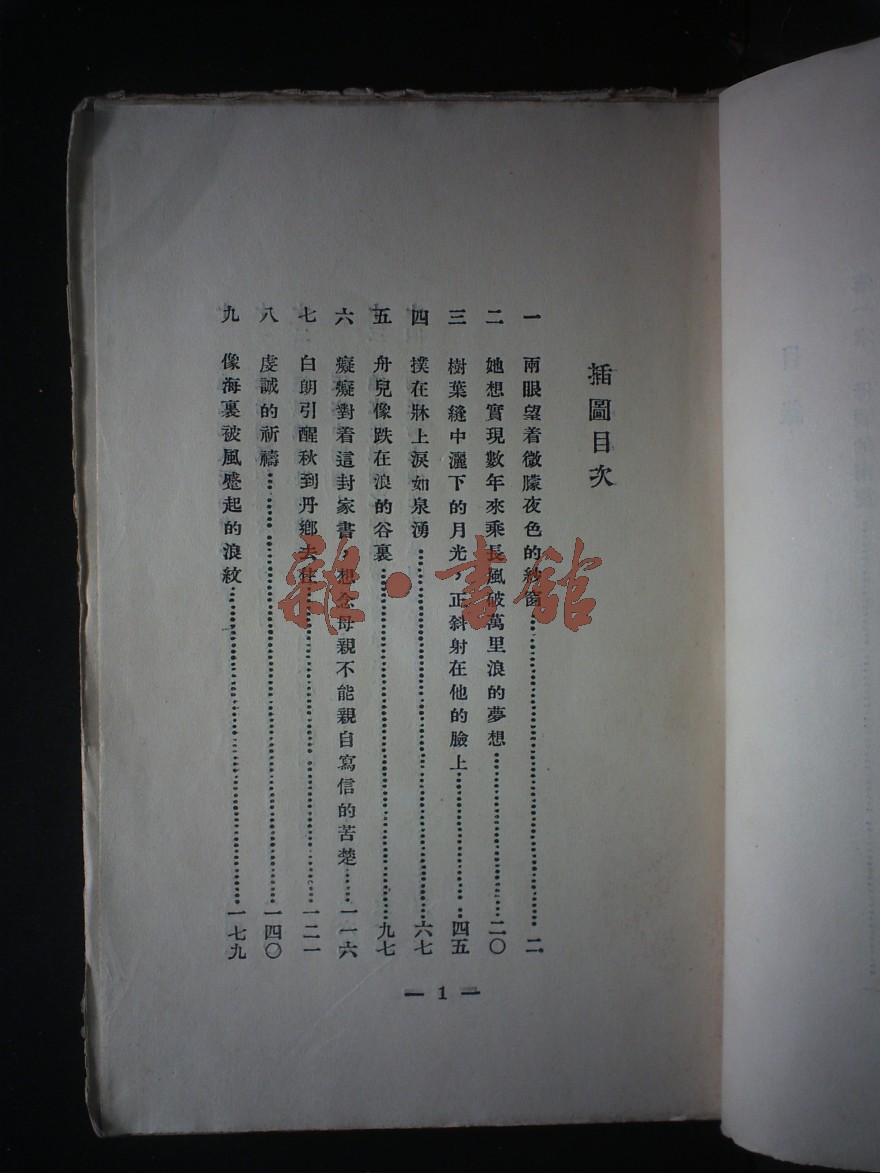 插圖目次
一 兩眼望着微朦夜色的紗窗……二
二 她想實現數年來乘長風破萬里浪的夢想……二〇
三 樹葉縫中灑下的月光，正斜射在他的臉上……四五
四 撲在牀上淚如泉湧……六七
五 舟兒像跌在浪的谷裏……九七
六 癡癡對着這封家書，想念母親不能親自寫信的苦楚……一一六
七 白朗引醒秋到丹鄉去住……一二一
八 虔誠的祈禱……一四〇
九 像海裏被風蹙起的浪紋……一七九
— 1 —
雜·書館